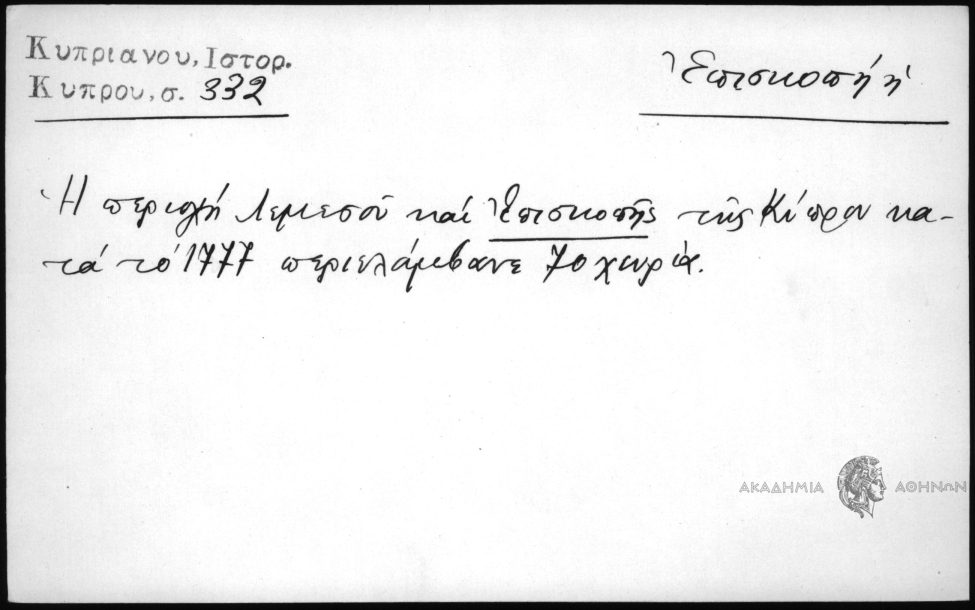 Κυπριανου, Ιστορ.
Κυπρου, σ. 332
Ἐπισκοπή ἡ
Ἡ περιοχή Λεμεσοῦ καί Ἐπισκοπῆς τῆς Κύπρου κα-
τά τό 1777 περιελάμβανε 70 χωριά.
ΑΚΑΔΗΜΙΑ ΑΘΗΝΩΝ